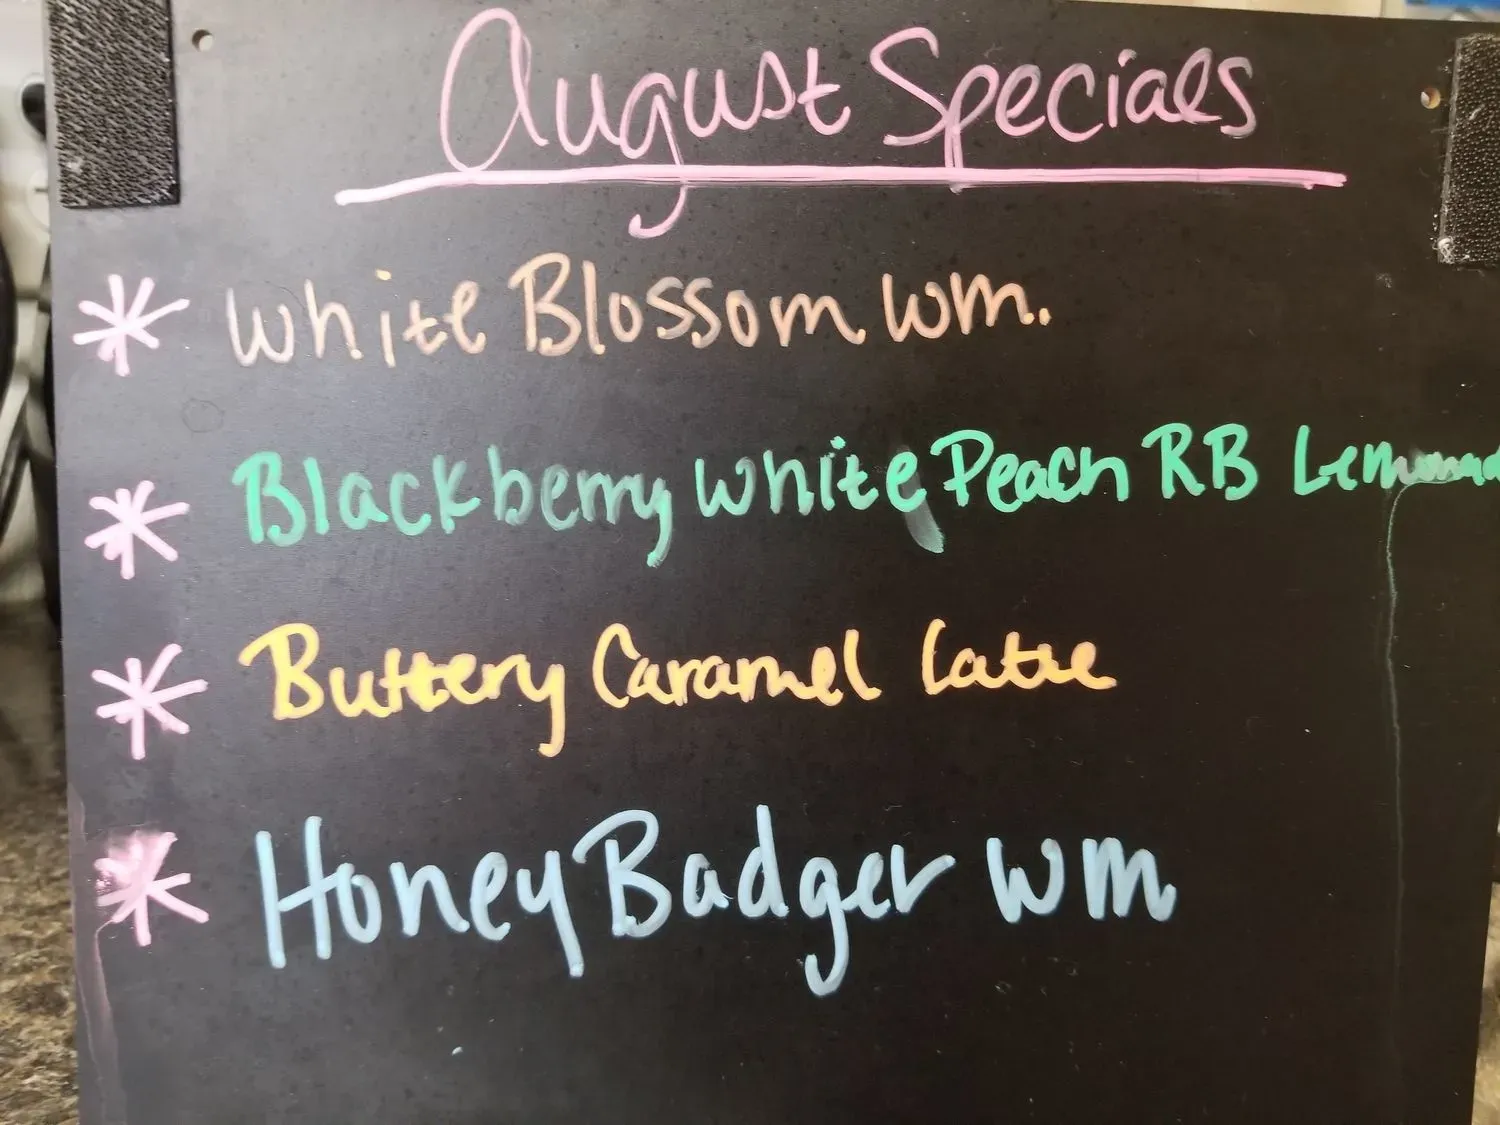 August Specials
* White Blossom WM.
* Blackberry White Peach RB Lemonad
* Buttery Caramel Latte
* Honey Badger WM